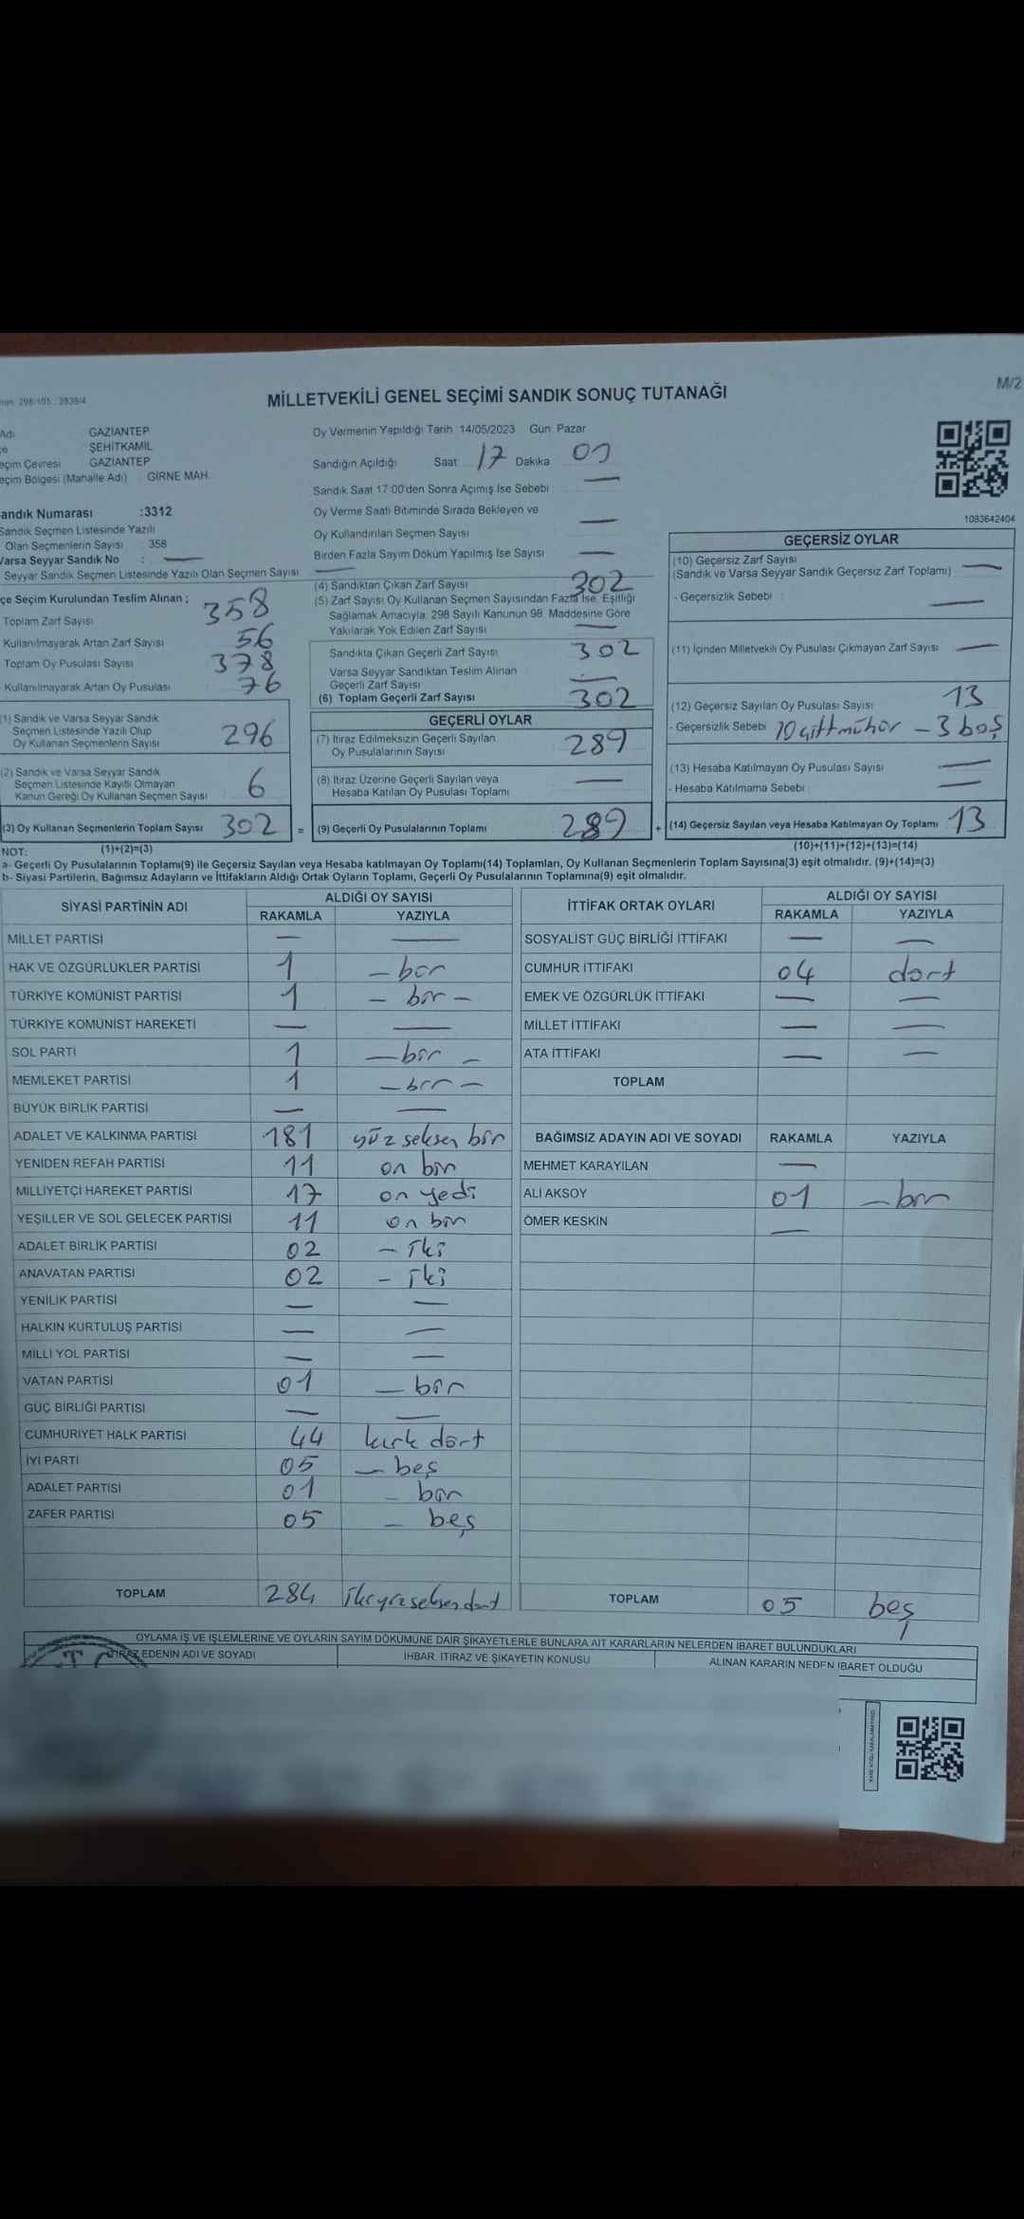 MİLLETVEKİLİ GENEL SEÇİMİ SANDIK SONUÇ TUTANAĞI
M/2
GAZİANTEP
ŞEHİTKAMİL
eçim Çevresi GAZİANTEP
eçim Bölgesi (Mahalle Adı) GİRNE MAH.
andık Numarası :3312
Sandık Seçmen Listesinde Yazılı
Olan Seçmenlerin Sayısı : 358
Varsa Seyyar Sandık No : —
Seyyar Sandık Seçmen Listesinde Yazılı Olan Seçmen Sayısı: —
Oy Vermenin Yapıldığı Tarih 14/05/2023 Gün Pazar
Sandığın Açıldığı Saat 17 Dakika
Sandık Saat 17:00'den Sonra Açımış İse Sebebi —
Oy Verme Saati Bitiminde Sırada Bekleyen ve
Oy Kullandırılan Seçmen Sayısı —
Birden Fazla Sayım Döküm Yapılmış İse Sayısı —
1083642404
çe Seçim Kurulundan Teslim Alınan ;
Toplam Zarf Sayısı 358
Kullanılmayarak Artan Zarf Sayısı 56
Toplam Oy Pusulası Sayısı 378
Kullanılmayarak Artan Oy Pusulası 76
(1) Sandık ve Varsa Seyyar Sandık
Seçmen Listesinde Yazılı Olup
Oy Kullanan Seçmenlerin Sayısı 296
(2) Sandık ve Varsa Seyyar Sandık
Seçmen Listesinde Kayıtlı Olmayan
Kanun Gereği Oy Kullanan Seçmen Sayısı 6
(3) Oy Kullanan Seçmenlerin Toplam Sayısı 302 =
(4) Sandıktan Çıkan Zarf Sayısı 302
(5) Zarf Sayısı Oy Kullanan Seçmen Sayısından Fazla İse, Eşitliği
Sağlamak Amacıyla, 298 Sayılı Kanunun 98. Maddesine Göre
Yakılarak Yok Edilen Zarf Sayısı —
Sandıkta Çıkan Geçerli Zarf Sayısı 302
Varsa Seyyar Sandıktan Teslim Alınan
Geçerli Zarf Sayısı —
(6) Toplam Geçerli Zarf Sayısı 302
GEÇERLİ OYLAR
(7) İtiraz Edilmeksizin Geçerli Sayılan
Oy Pusulalarının Sayısı 289
(8) İtiraz Üzerine Geçerli Sayılan veya
Hesaba Katılan Oy Pusulası Toplamı —
(9) Geçerli Oy Pusulalarının Toplamı 289 +
GEÇERSİZ OYLAR
(10) Geçersiz Zarf Sayısı
(Sandık ve Varsa Seyyar Sandık Geçersiz Zarf Toplamı) —
- Geçersizlik Sebebi : —
(11) İçinden Milletvekili Oy Pusulası Çıkmayan Zarf Sayısı —
(12) Geçersiz Sayılan Oy Pusulası Sayısı 13
- Geçersizlik Sebebi 10 çift mühür - 3 boş
(13) Hesaba Katılmayan Oy Pusulası Sayısı —
- Hesaba Katılmama Sebebi —
(14) Geçersiz Sayılan veya Hesaba Katılmayan Oy Toplamı 13
NOT: (1)+(2)=(3) (10)+(11)+(12)+(13)=(14)
a- Geçerli Oy Pusulalarının Toplamı(9) ile Geçersiz Sayılan veya Hesaba katılmayan Oy Toplamı(14) Toplamları, Oy Kullanan Seçmenlerin Toplam Sayısına(3) eşit olmalıdır. (9)+(14)=(3)
b- Siyasi Partilerin, Bağımsız Adayların ve İttifakların Aldığı Ortak Oyların Toplamı, Geçerli Oy Pusulalarının Toplamına(9) eşit olmalıdır.
SİYASİ PARTİNİN ADI ALDIĞI OY SAYISI
RAKAMLA YAZIYLA
MİLLET PARTİSİ — —
HAK VE ÖZGÜRLÜKLER PARTİSİ 1 - bir
TÜRKİYE KOMÜNİST PARTİSİ 1 - bir -
TÜRKİYE KOMÜNİST HAREKETİ — —
SOL PARTİ 1 - bir -
MEMLEKET PARTİSİ 1 - bir -
BÜYÜK BİRLİK PARTİSİ — —
ADALET VE KALKINMA PARTİSİ 181 yüz seksen bir
YENİDEN REFAH PARTİSİ 11 on bir
MİLLİYETÇİ HAREKET PARTİSİ 17 on yedi
YEŞİLLER VE SOL GELECEK PARTİSİ 11 on bir
ADALET BİRLİK PARTİSİ 02 - iki
ANAVATAN PARTİSİ 02 - iki
YENİLİK PARTİSİ — —
HALKIN KURTULUŞ PARTİSİ — —
MİLLİ YOL PARTİSİ — —
VATAN PARTİSİ 01 - bir
GÜÇ BİRLİĞİ PARTİSİ — —
CUMHURİYET HALK PARTİSİ 44 kırk dört
İYİ PARTİ 05 - beş
ADALET PARTİSİ 01 - bir
ZAFER PARTİSİ 05 - beş
TOPLAM 284 ikiyüzseksendört
İTTİFAK ORTAK OYLARI ALDIĞI OY SAYISI
RAKAMLA YAZIYLA
SOSYALİST GÜÇ BİRLİĞİ İTTİFAKI — —
CUMHUR İTTİFAKI 04 dört
EMEK VE ÖZGÜRLÜK İTTİFAKI — —
MİLLET İTTİFAKI — —
ATA İTTİFAKI — —
TOPLAM
BAĞIMSIZ ADAYIN ADI VE SOYADI RAKAMLA YAZIYLA
MEHMET KARAYILAN —
ALİ AKSOY 01 - bir
ÖMER KESKİN —
TOPLAM 05 beş
OYLAMA İŞ VE İŞLEMLERİNE VE OYLARIN SAYIM DÖKÜMÜNE DAİR ŞİKAYETLERLE BUNLARA AİT KARARLARIN NELERDEN İBARET BULUNDUKLARI
İTİRAZ EDENİN ADI VE SOYADI İHBAR, İTİRAZ VE ŞİKAYETİN KONUSU ALINAN KARARIN NEDEN İBARET OLDUĞU